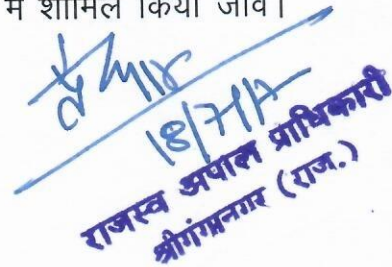 में शामिल किया जावे।
18/7/17
राजस्व अपील प्राधिकारी
श्रीगंगानगर (राज.)